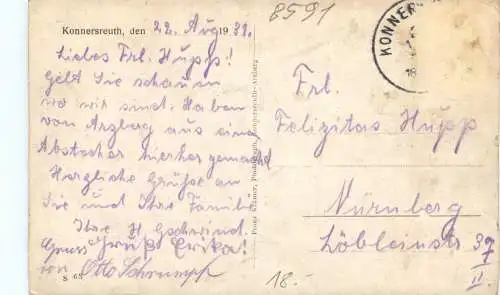 Konnersreuth, den 22. Aug. 1931.
Liebes Frl. Hupp!
Gelt Sie schauen
wo wir sind. Haben
von Arzberg aus eine
Abstecher hierher gemacht
Herzliche Grüße an
Sie und Ihre Familie
Ihre H. Gschwind.
Gruß Erika!
Gruss
von Otto Schrumpf
S 65
8591
KONNER
Frl.
Felizitas Hupp
Nürnberg
Löbleinstr 37
II.
18.-